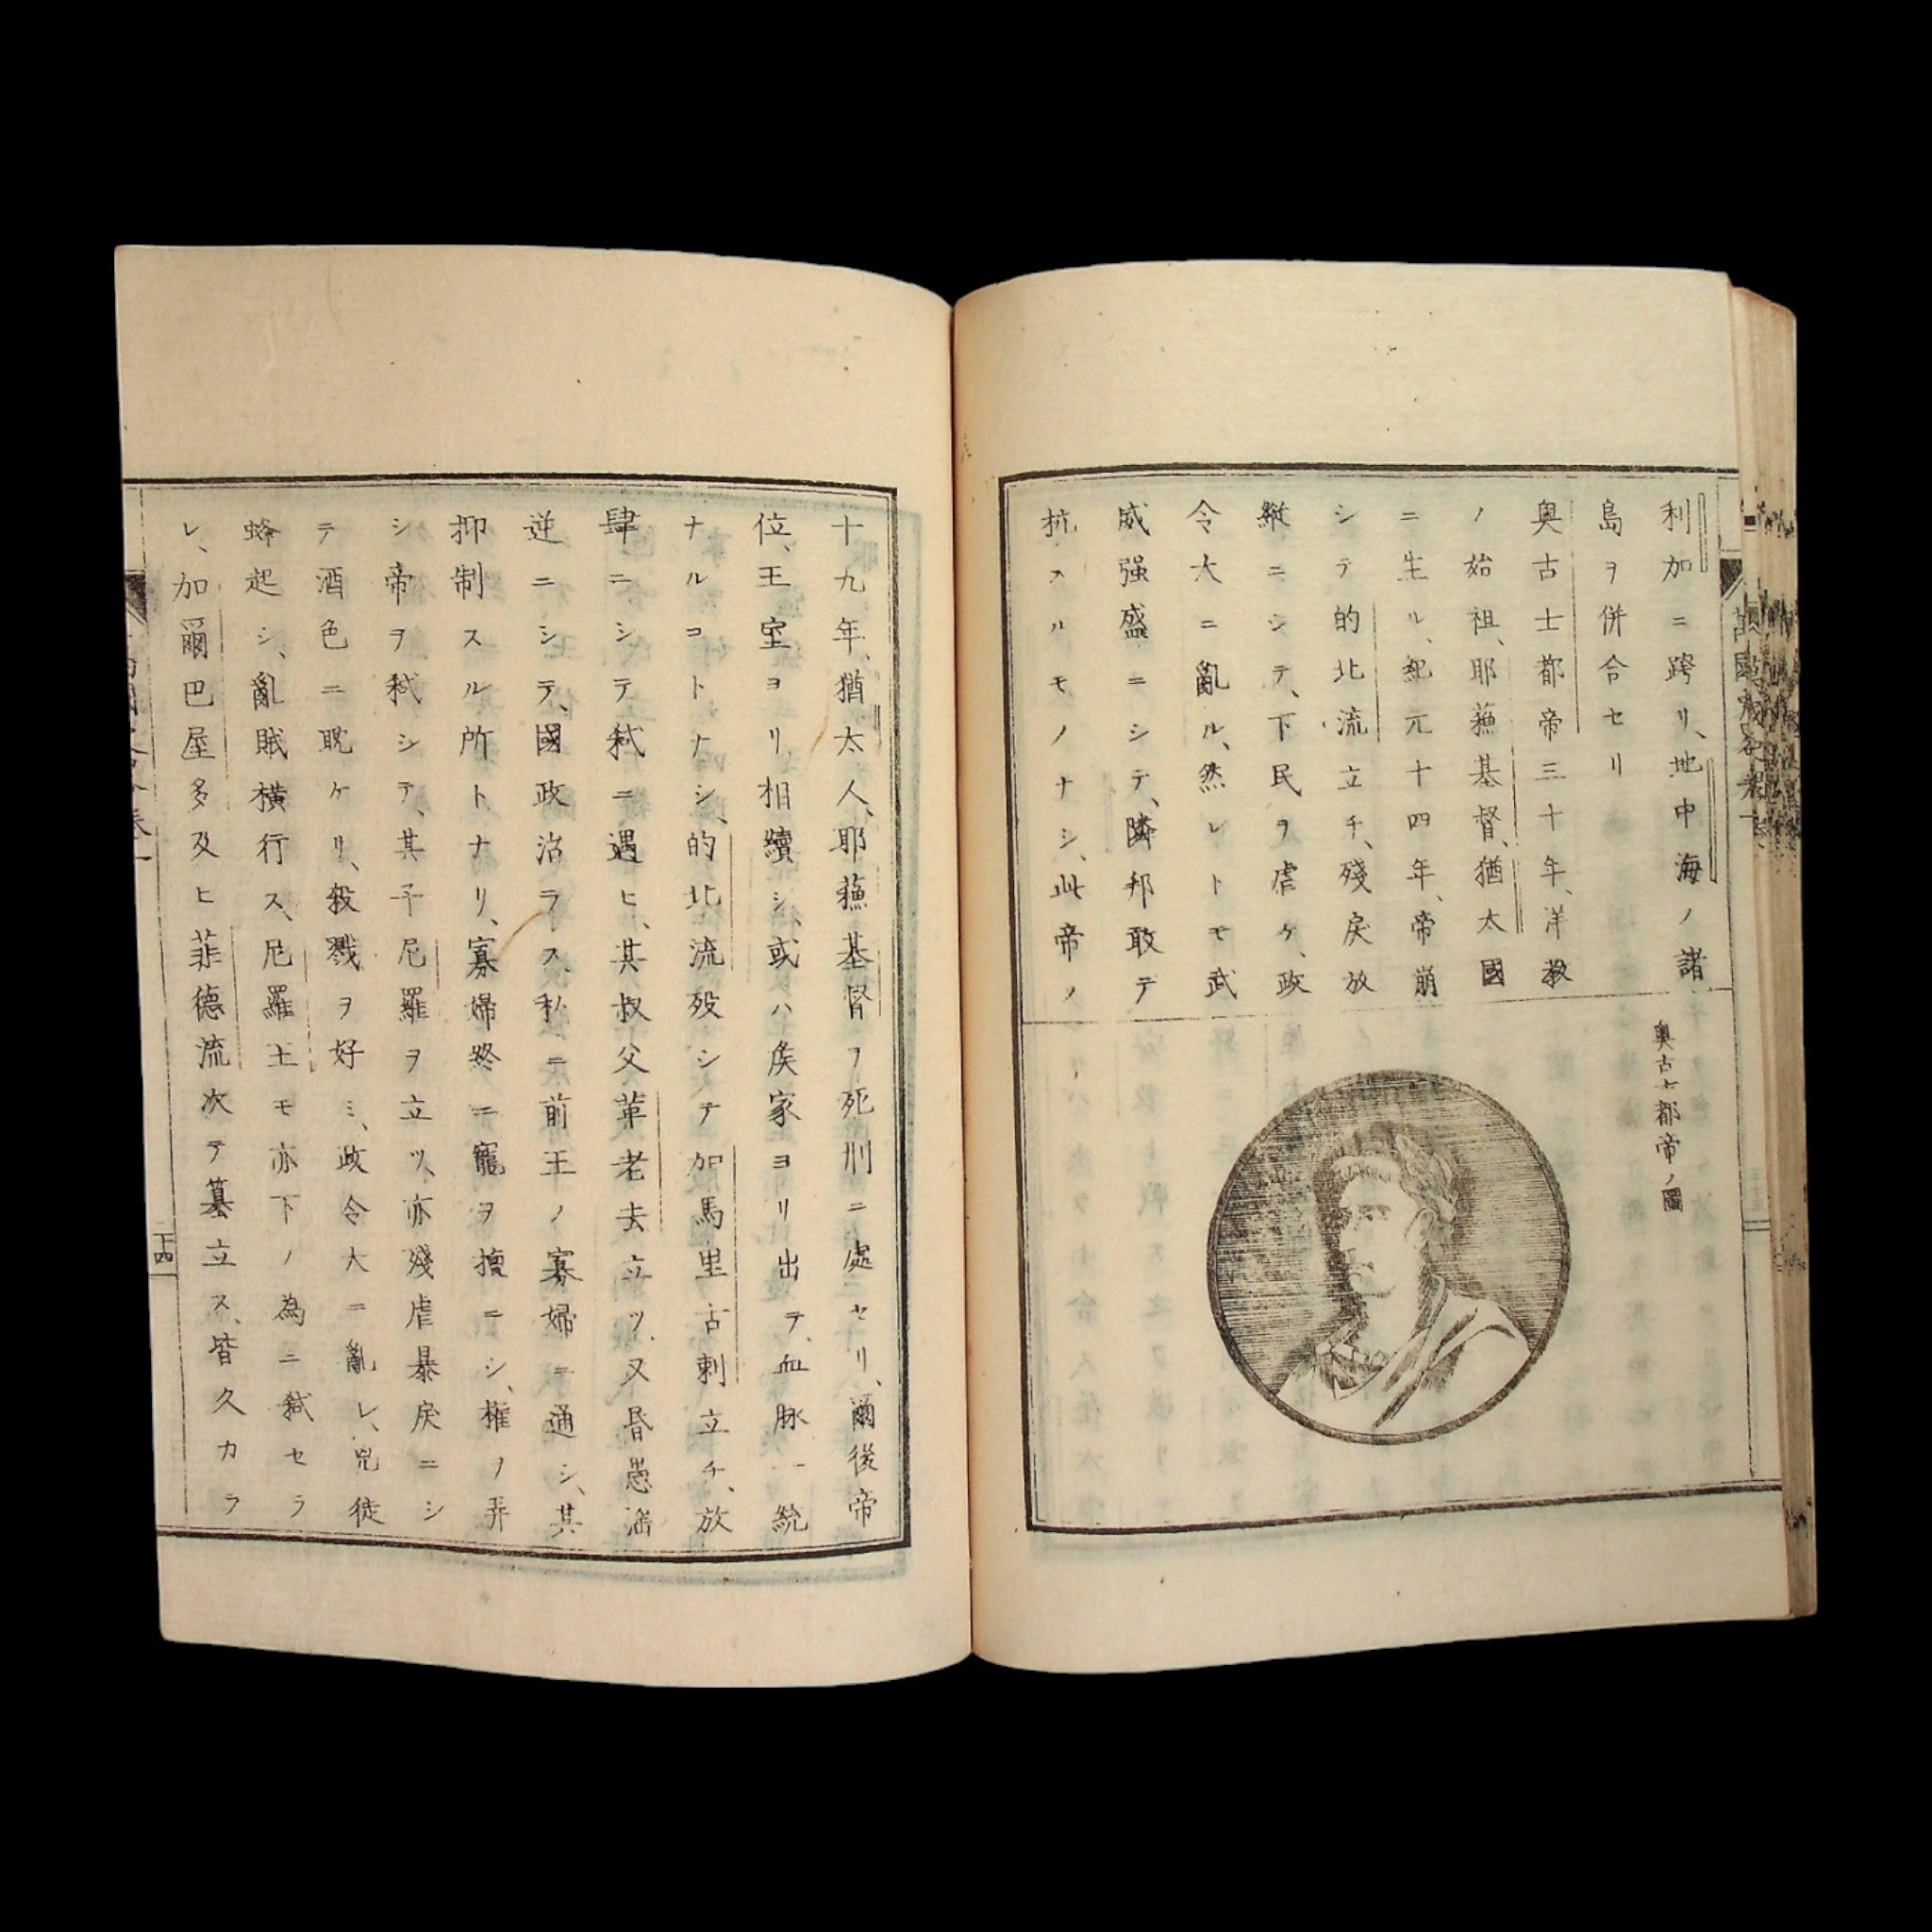 利加ニ跨リ、地中海ノ諸
島ヲ併合セリ
奥古士都帝三十年、洋教
ノ始祖、耶蘓基督、猶太國
ニ生ル、紀元十四年、帝崩
シテ的北流立チ、殘戻放
縦ニシテ、下民ヲ虐ケ、政
令大ニ亂ル、然レトモ武
威强盛ニシテ、隣邦敢テ
抗スルモノナシ、此帝ノ
奥古士都帝ノ圖
十九年、猶太人、耶蘓基督ヲ死刑ニ處セリ、爾後帝
位、王室ヨリ相續シ、或ハ矦家ヨリ出テ、血脉一統
ナルコトナシ、的北流歿シテ加馬里古刺立チ、放
肆ニシテ弑ニ遇ヒ、其叔父革老去立ツ、又昏愚滛
逆ニシテ、國政治ラス、私ニ前王ノ寡婦ニ通シ、其
抑制スル所トナリ、寡婦終ニ寵ヲ擅ニシ、權ノ弄
シ帝ヲ弑シテ、其子尼羅ヲ立ツ、亦殘虐暴戻ニシ
テ酒色ニ耽ケリ、殺戮ヲ好ミ、政令大ニ亂レ、兇徒
蜂起シ、亂賊横行ス、尼羅王モ亦下ノ為ニ弑セラ
レ、加爾巴屋多及ヒ菲德流次テ簒立ス、皆久カラ
十四